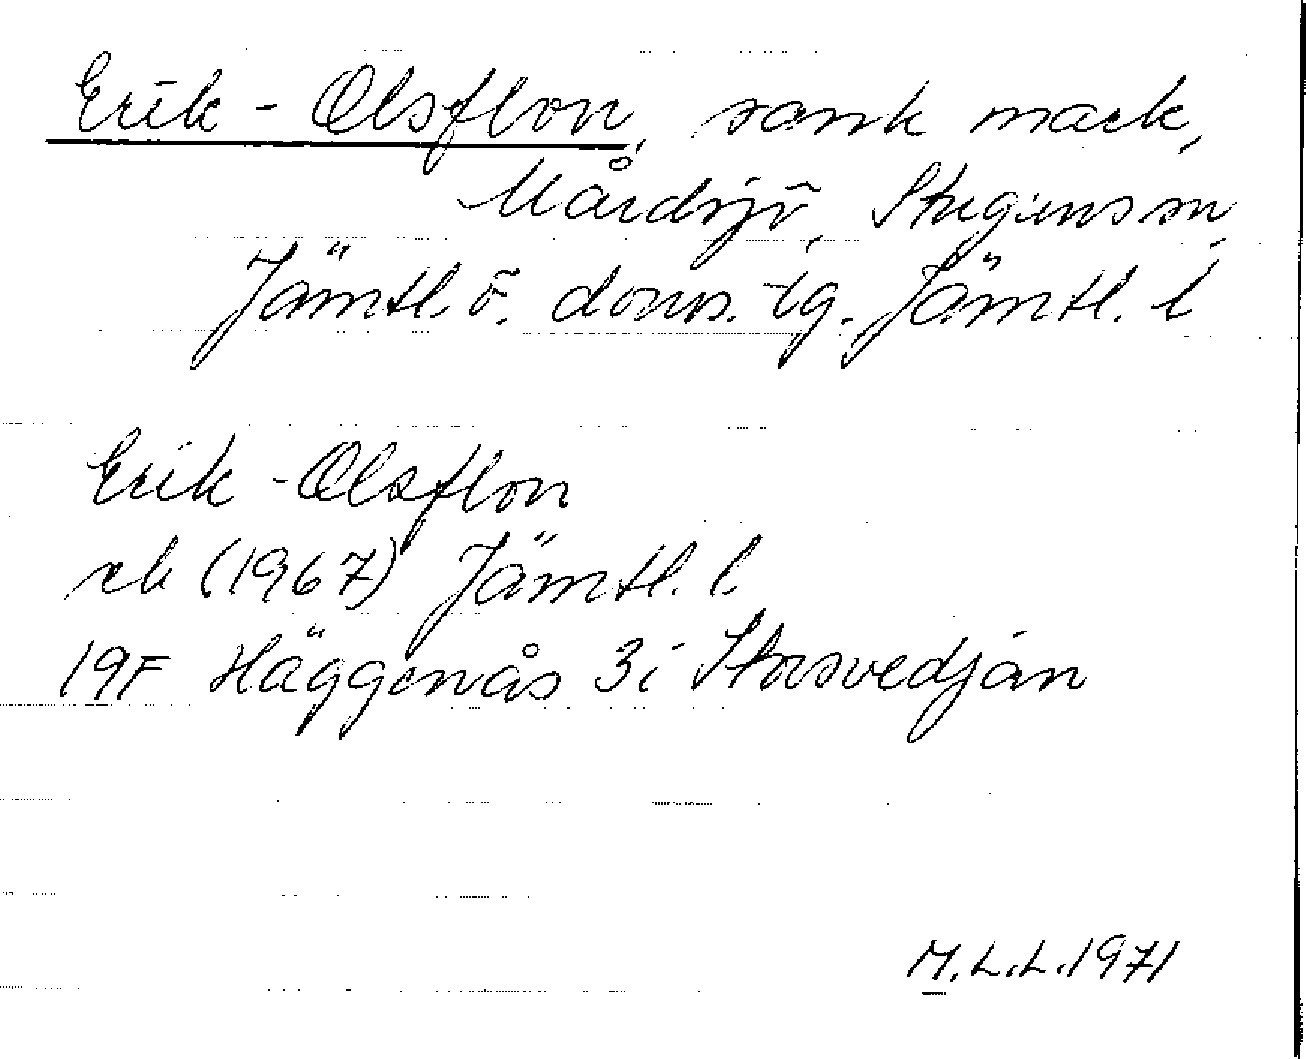 Erik-Olsflon, sank mark,
Mårdsjö, Stuguns sn,
Jämtl. ö. doms. tg. Jämtl. l
Erik-Olsflon
rk (1967) Jämtl. l.
19F Häggenås 3i Storsvedjan
M.L.L.1971